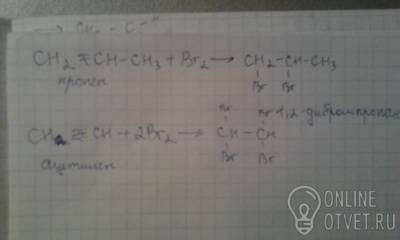 CH₂=CH-CH₃+Br₂→CH₂-CH-CH₃
Br Br
пропен
Br Br 1,2-дибромпропан
CH₂≡CH+2Br₂→CH-CH
Br Br
ацетилен
ONLINE
OTVET.RU